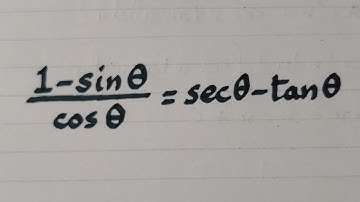 (1-sinθ)/(cosθ) = secθ-tanθ